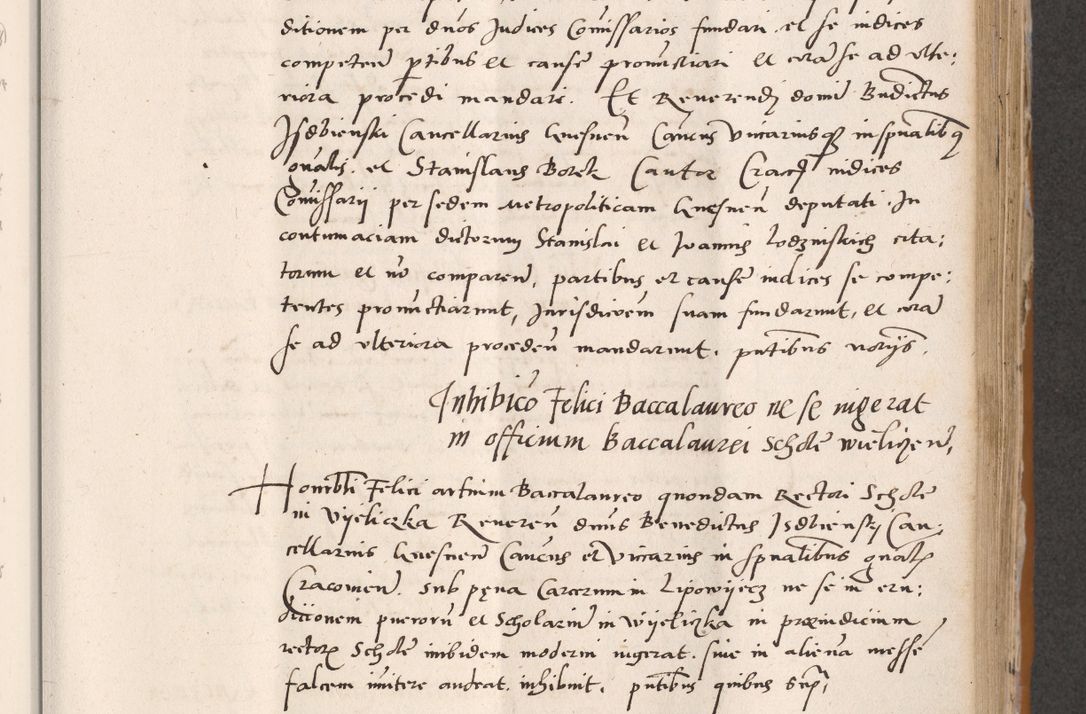 ditionem per dnos Judices Comissarios fundari et se iudices
competen ptibus et cause pronuctiari et cora se ad vlte:
riora procedi mandari. Et Reuerendj domini Bndictus
Isdbienski Cancellarius Gnesnen Cancus Vicariusq in spualibq
et Stanislaus Borek Cantor Crac iudices
Comissarij per sedem Metropoliticam Gnesnen deputati. In
contumaciam dictorum Stanislai et Joannis Lodzinskich cita:
torum et no comparen, partibus et cause iudices se compe:
tentes pronuctiarunt, Jurisdicoem suam fundarunt, et cora
se ad vlteriora proceden mandarunt. pntibus
Inhibico Felici Baccalaureo ne se ingerat
in officium Baccalaurei Schole Wieliczen,
Honrbli Felici artium Baccalaureo quondam Rectori Schole
in Vyeliczka Reueren dnus Benedictus Isdbienskj Can:
cellarius Gnesnen Canucus et Vicarius in spualibus gnalis
Cracouien. Sub pena Carcerum in Lipowyecz ne se in eru:
diccionem pueroru et Scholarium in Wyeliczka in preiudicium
rectoris Schole inibidem moderni ingerat. siue in aliena messe
falcem imitere audeat. inhibuit. pntibus quibus sup,